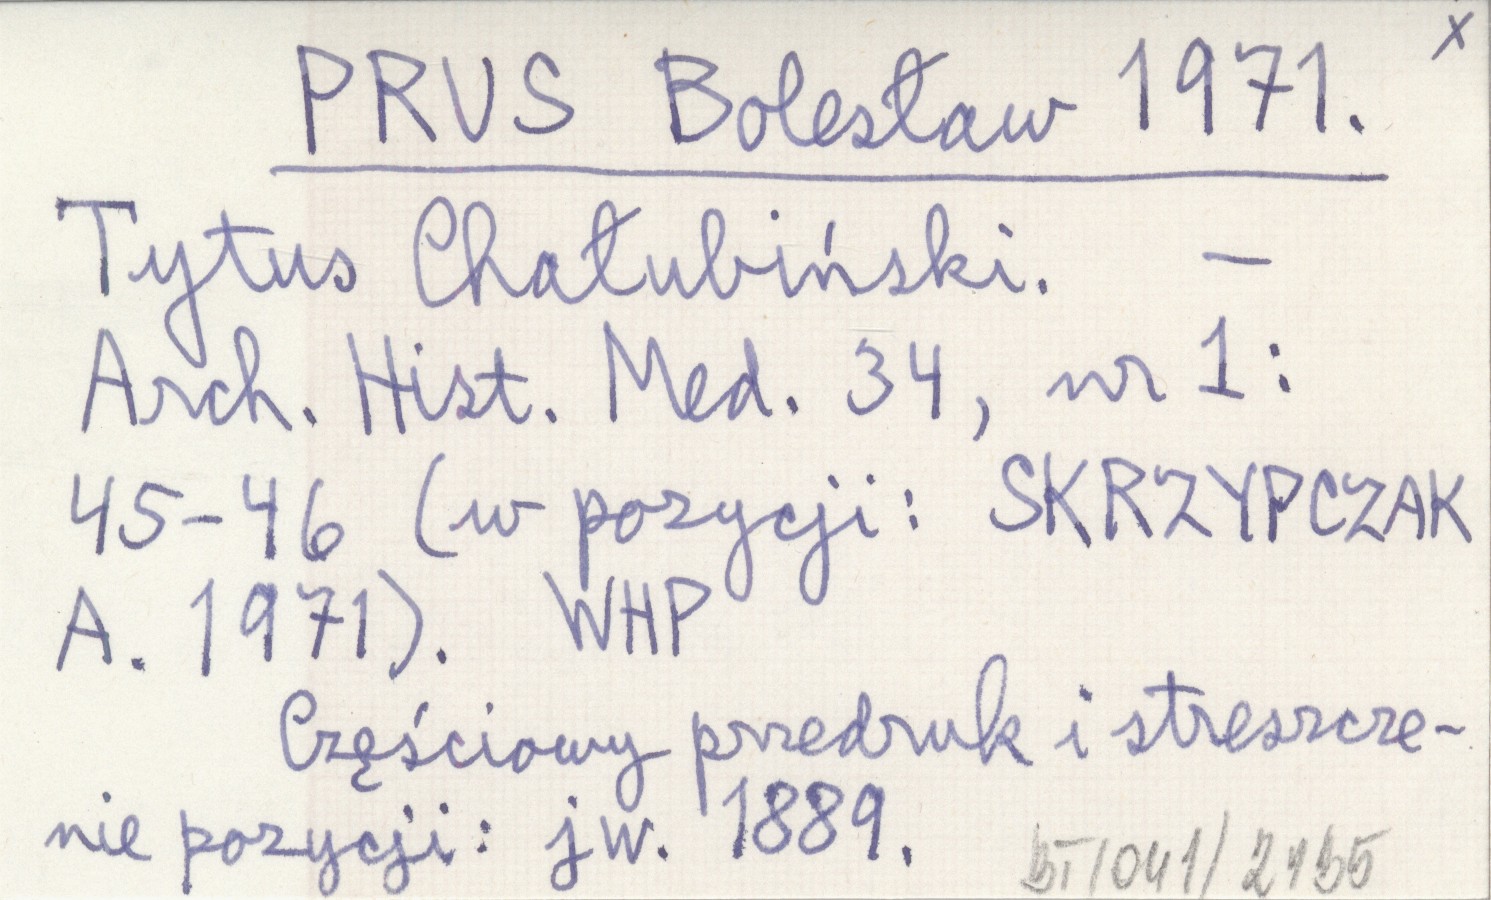 x
PRUS Bolesław 1971.
Tytus Chałubiński. —
Arch. Hist. Med. 34, nr 1:
45-46 (w pozycji: SKRZYPCZAK
A. 1971). WHP
Częściowy przedruk i streszcze-
nie pozycji: jw. 1889.